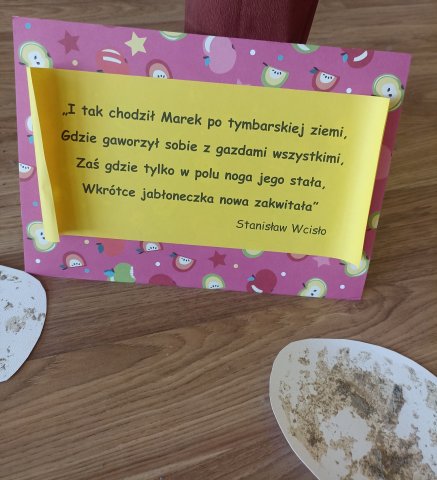 „I tak chodził Marek po tymbarskiej ziemi,
Gdzie gaworzył sobie z gazdami wszystkimi,
Zaś gdzie tylko w polu noga jego stała,
Wkrótce jabłoneczka nowa zakwitała”
Stanisław Wcisło